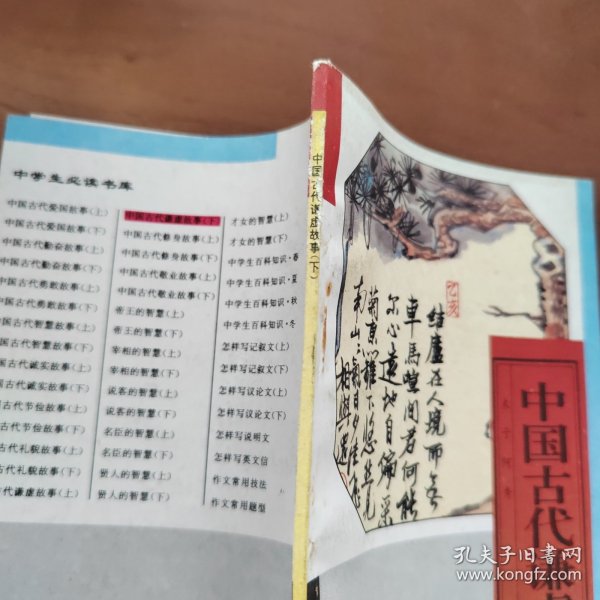 中学生必读书库
中国古代爱国故事(上)
中国古代爱国故事(下)
中国古代勤奋故事(上)
中国古代勤奋故事(下)
国古代勇敢故事(上)
国古代勇敢故事(下)
国古代智慧故事(上)
国古代智慧故事(下)
国古代诚实故事(上)
国古代诚实故事(下)
古代节俭故事(上)
古代节俭故事(下)
古代礼貌故事(上)
古代礼貌故事(下)
古代谦虚故事(上)
中国古代谦虚故事(下)
中国古代修身故事(上)
中国古代修身故事(下)
中国古代敬业故事(上)
中国古代敬业故事(下)
帝王的智慧(上)
帝王的智慧(下)
宰相的智慧(上)
宰相的智慧(下)
说客的智慧(上)
说客的智慧(下)
名臣的智慧(上)
名臣的智慧(下)
商人的智慧(上)
商人的智慧(下)
才女的智慧(上)
才女的智慧(下)
中学生百科知识·春
中学生百科知识·夏
中学生百科知识·秋
中学生百科知识·冬
怎样写记叙文(上)
怎样写记叙文(下)
怎样写议论文(上)
怎样写议论文(下)
怎样写说明文
怎样写英文信
作文常用技法
作文常用题型
中国古代谦虚故事(下)
结庐在人境而无
车马喧问君何能
尔心远地自偏采
菊东篱下悠然见
南山山气日夕佳飞鸟
相与还
中国古代谦
孔夫子旧书网
www.kongfz.com